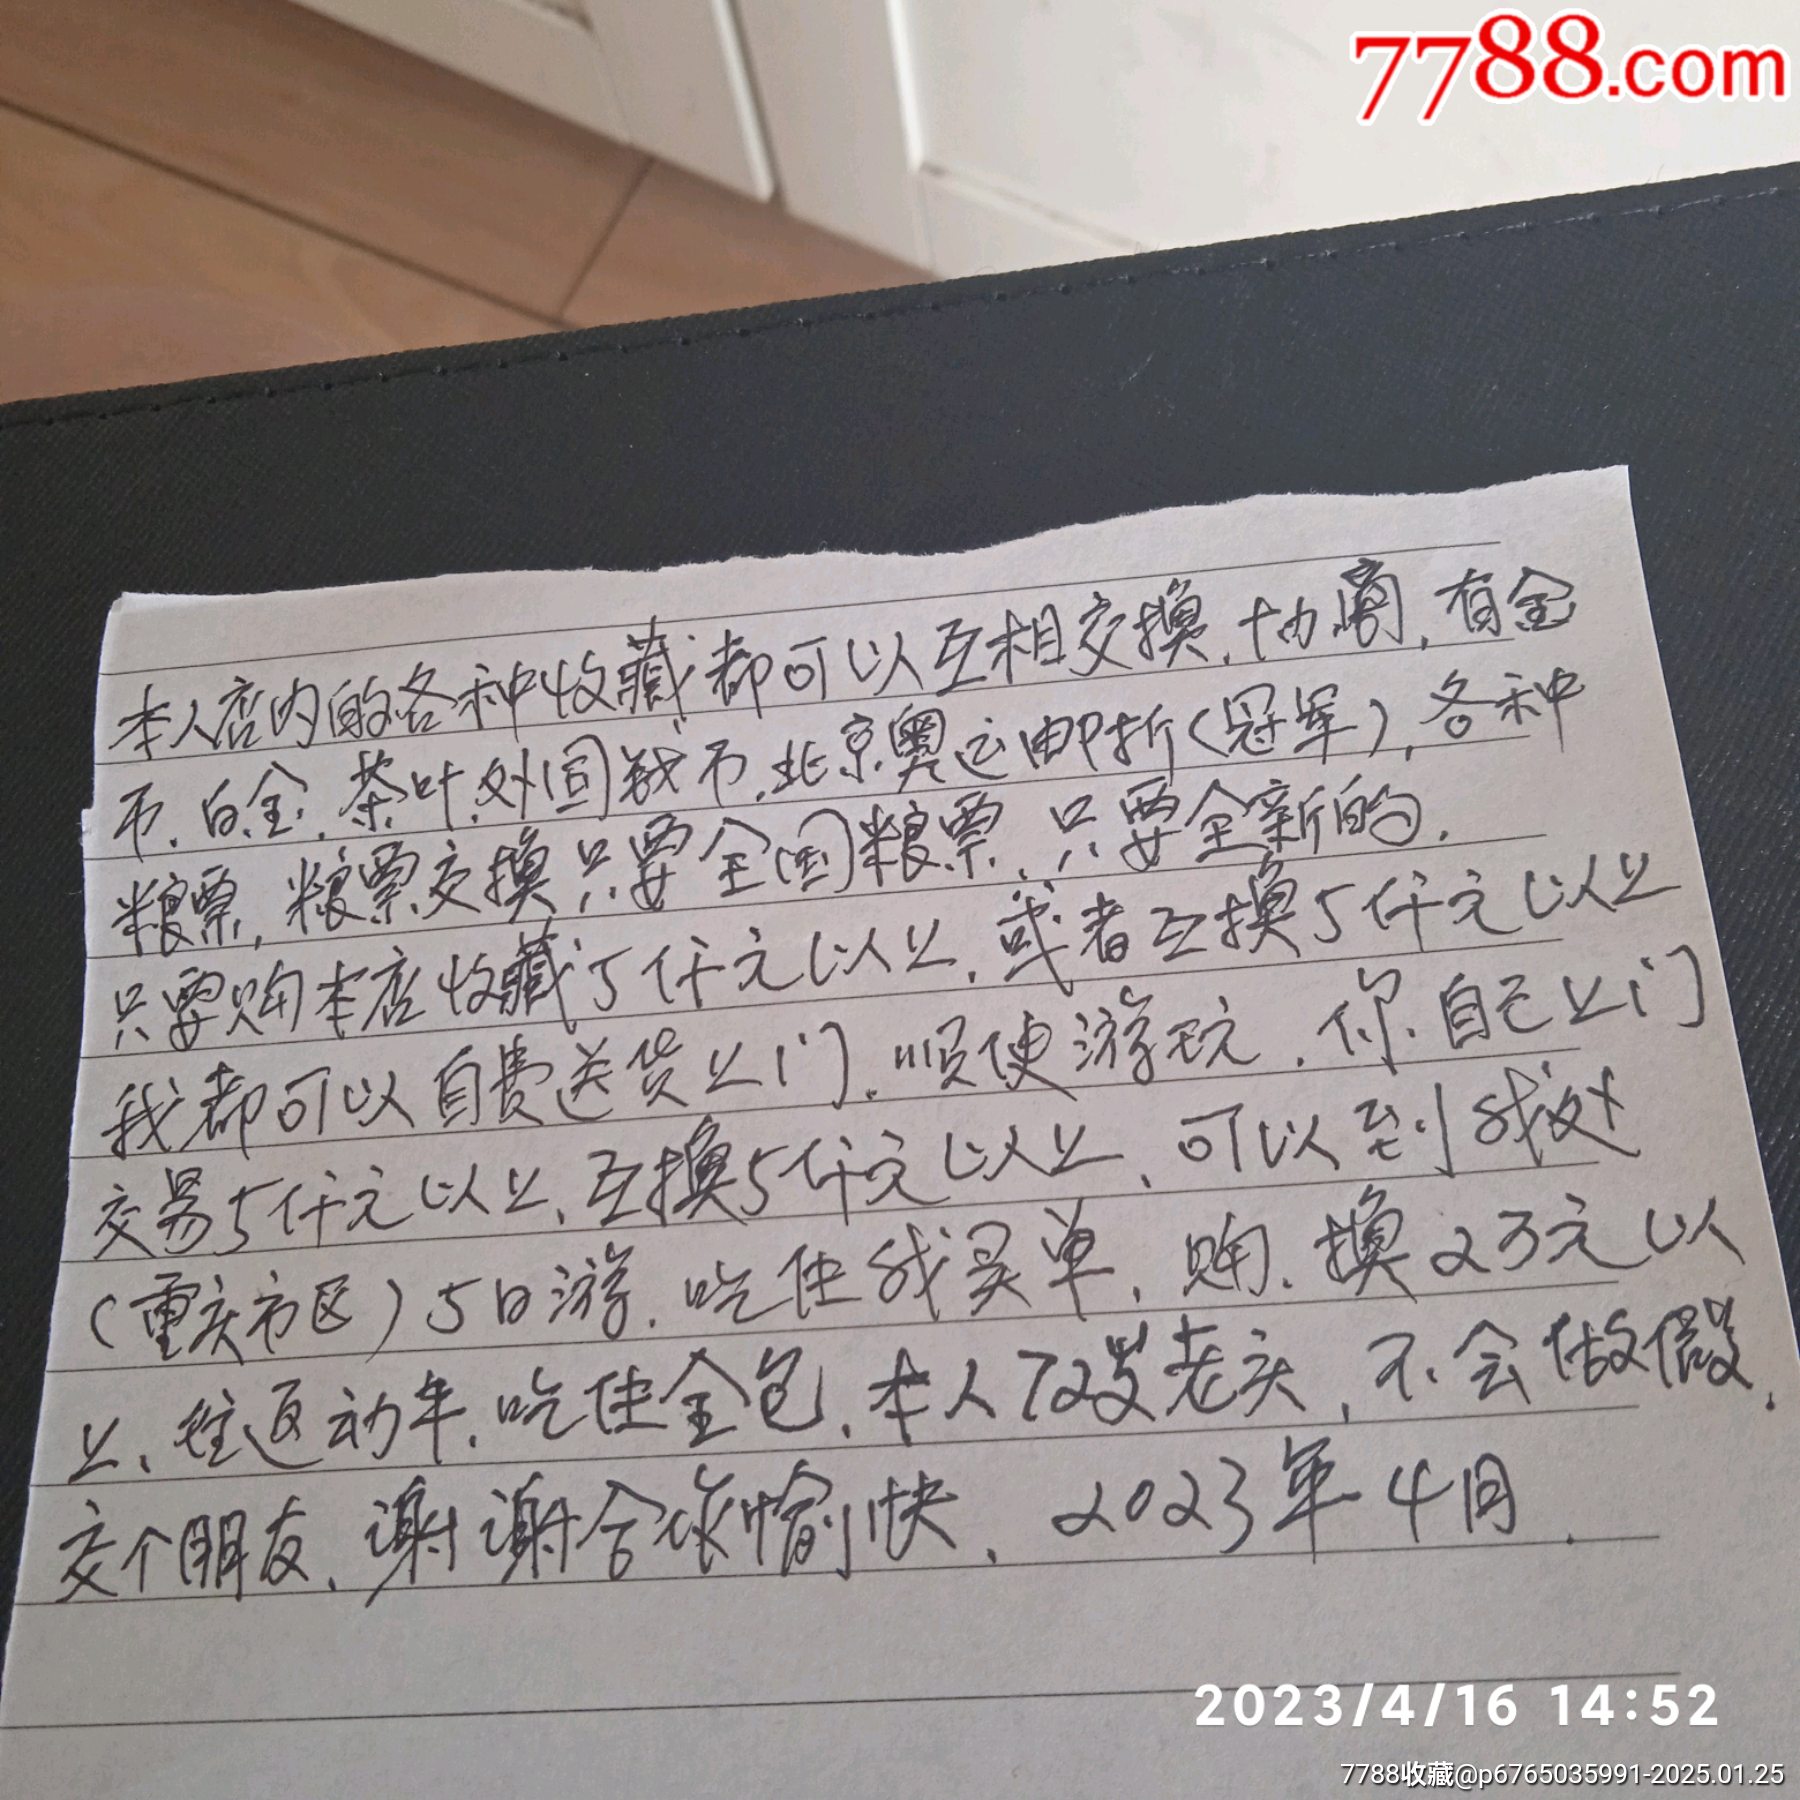 7788.com
本人店内的各种收藏都可以互相交换.协商,有金
币.白金,茶叶,外国钱币,北京奥运邮折(冠军),各种
粮票,粮票交换只要全国粮票,只要全新的.
只要购本店收藏5仟元以上,或者互换5仟元以上
我都可以自费送货上门.顺便游玩.你自己上门
交易5仟元以上,互换5仟元以上,可以到我处
(重庆市区)5日游.吃住我买单,购.换2万元以
上、往返动车,吃住全包,本人72岁老头,不会做假,
交个朋友,谢谢合作愉快. 2023年4月.
2023/4/16 14:52
7788收藏@p6765035991-2025.01.25